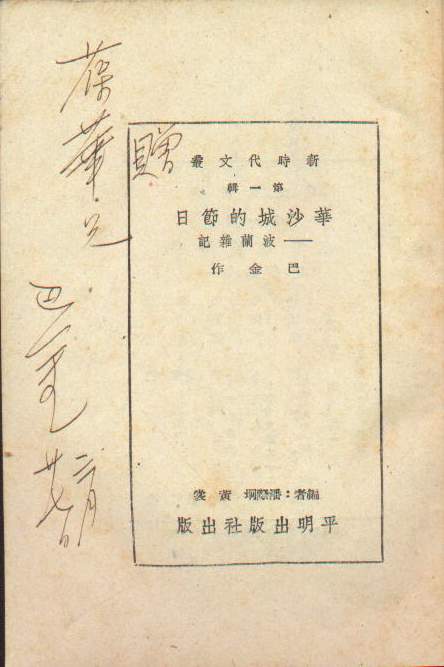 新時代文叢
第一輯
華沙城的節日
——波蘭雜記
巴金作
編者：潘際坰 黃裳
平明出版社出版
贈
葆華兄
巴金
二月